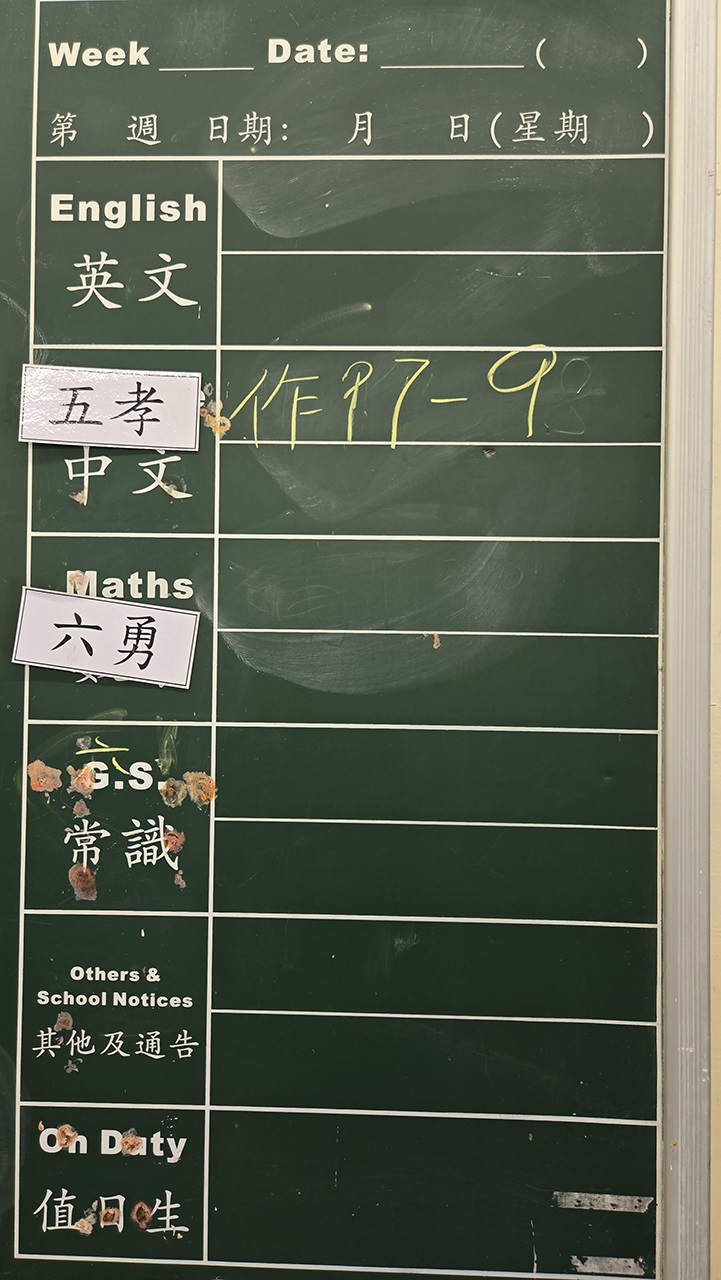 Week ____ Date: ______ ( )
第 週 日期: 月 日(星期 )
English
英文
五孝
作P7-9
中文
Maths
六勇
G.S.
常識
Others &
School Notices
其他及通告
On Duty
值日生